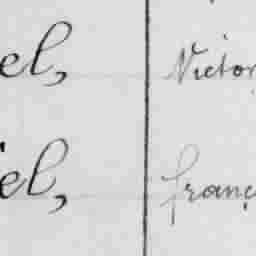 el, Victor
el, franç